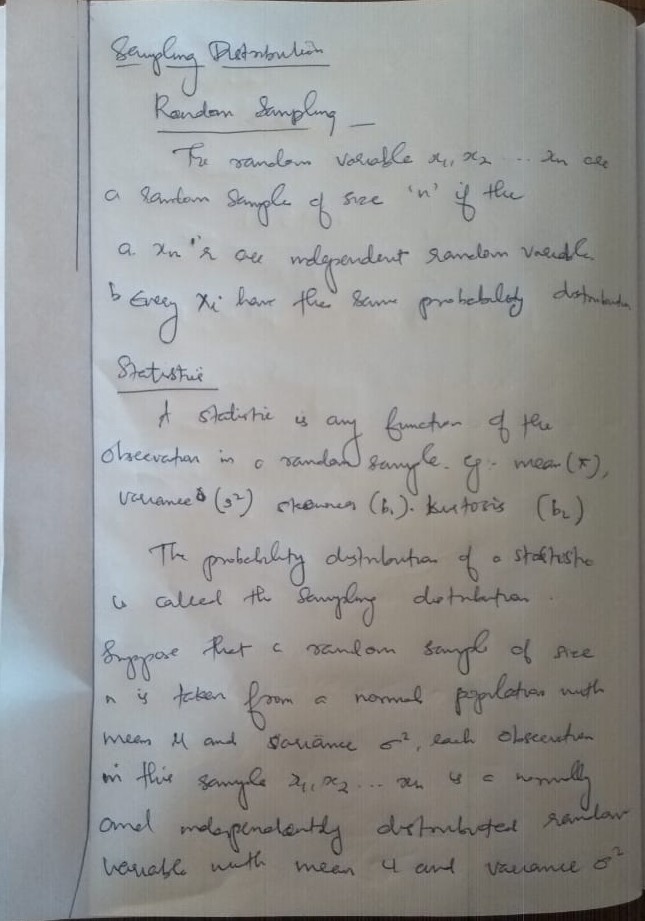 Sampling Distribution
Random Sampling –
The random variable x₁, x₂ ... xn are
a random sample of size 'n' if the
a. xn's are independent random variable
b Every xi have the same probability distribution
Statistic
A statistic is any function of the
observation in a random sample. eg. mean (x̄),
variance (s²) skewness (b₁). kurtosis (b₂)
The probability distribution of a statistic
is called the sampling distribution.
Suppose that a random sample of size
n is taken from a normal population with
mean μ and variance σ², each observation
in this sample x₁, x₂ ... xn is a normally
and independently distributed random
variable with mean μ and variance σ²